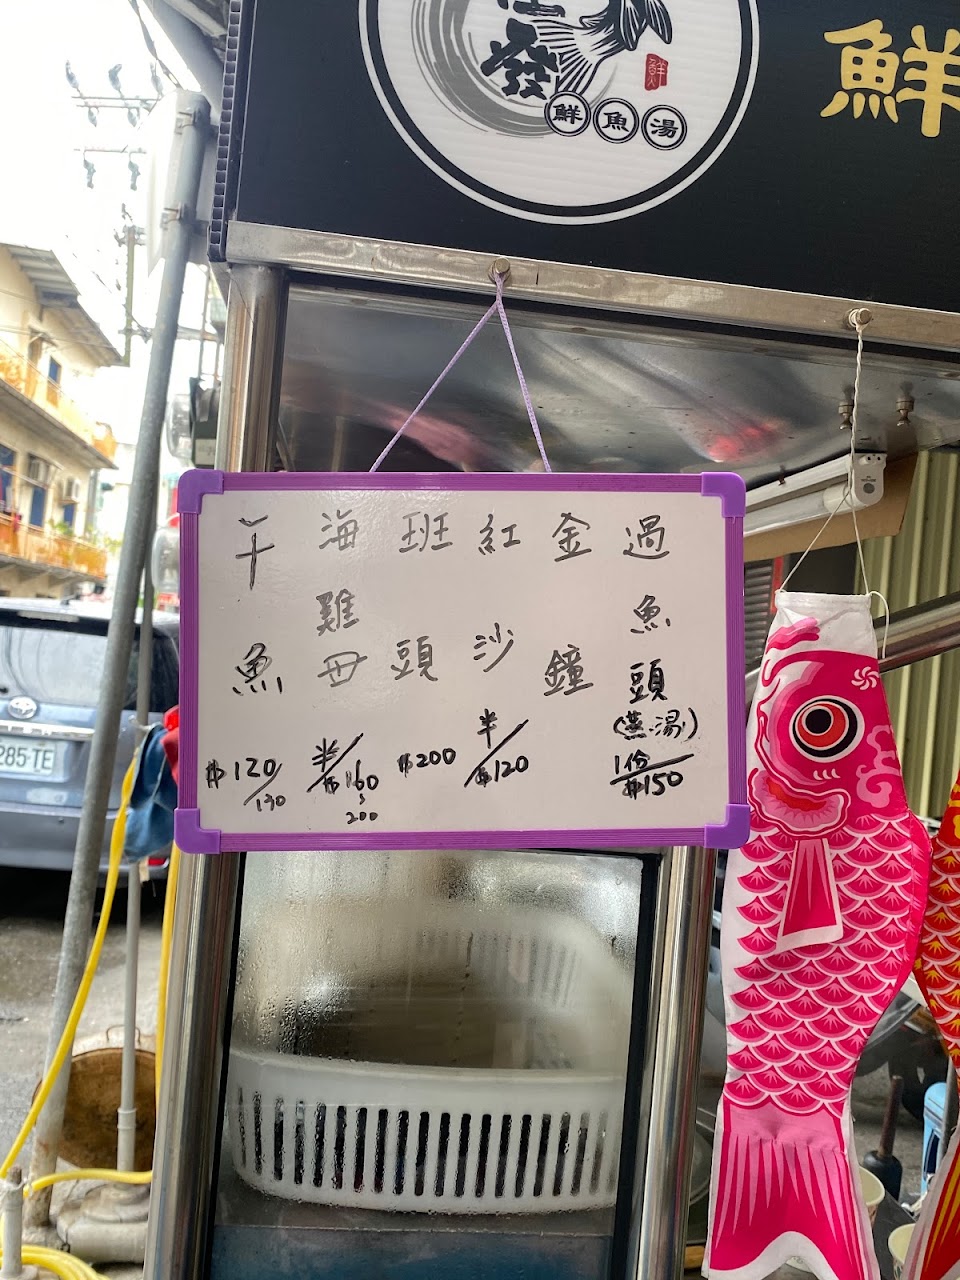 發
鮮
鮮魚湯
鮮
過魚頭
(蒸.湯)
1份
$150
金鐘
紅沙
半/$120
班頭
$200
海雞母
半/$160
~
200
午魚
$120/130
285-TE